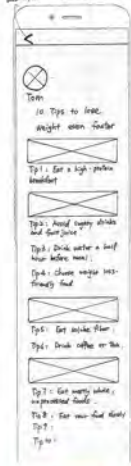 Tom
10 Tips to lose
weight even faster
Tip1: Eat a high-protein
breakfast
Tip2: Avoid sugary drinks
and fruit juice
Tip3: Drink water a half
hour before meal;
Tip4: Choose weight loss-
friendly food
Tip5: Eat soluble fiber;
Tip6: Drink coffee or Tea;
Tip7: Eat mostly whole,
unprocessed foods.
Tip8: Eat your food slowly
Tip9:
Tip10: